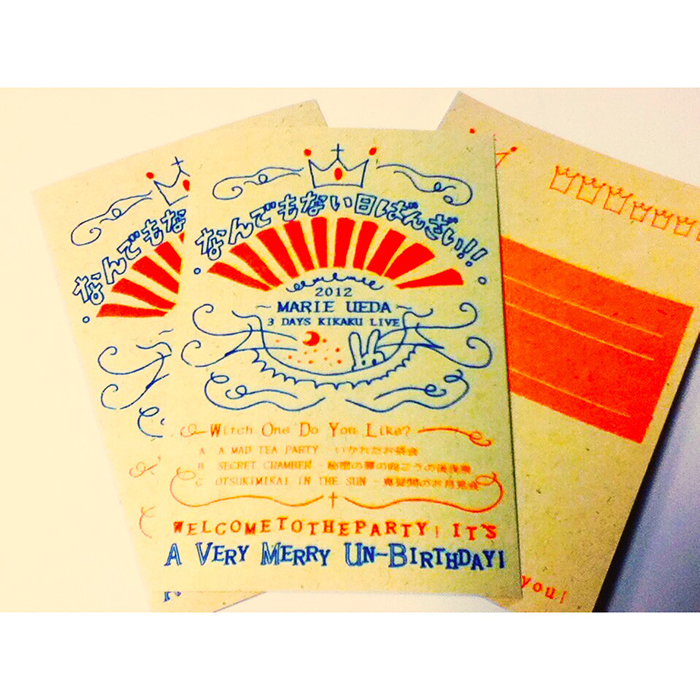 なんでもない日ばんざい!!
2012
~MARIE UEDA~
3 DAYS KIKAKU LIVE
Witch One Do You Like?
A A MAD TEA PARTY - いかれたお茶会
B SECRET CHAMBER - 秘密の扉の向こうの後夜祭
C OTSUKIMIRAI IN THE SUN - 真昼間のお月見会
WELCOME TO THE PARTY! IT'S
A VERY MERRY UN-BIRTHDAY!
なんでもな
you!